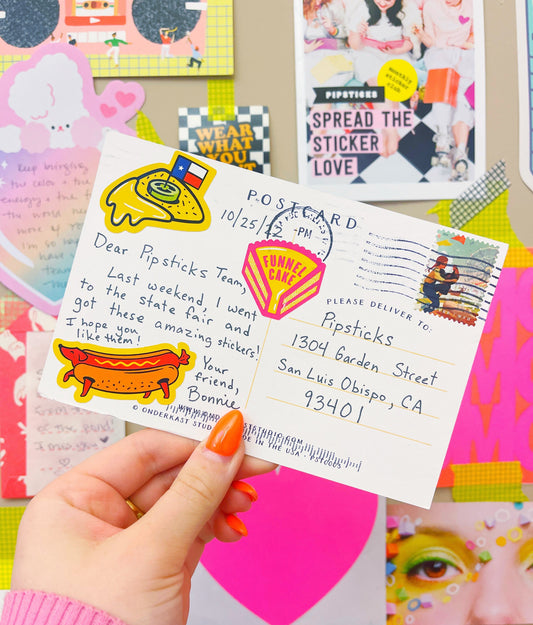 monthly
sticker
club
PIPSTICKS
SPREAD THE
STICKER
LOVE
WEAR
WHAT
YOU
Keep bringing
the color + the
energy + the
POSTCARD
10/25/22 -PM
Dear Pipsticks Team,
Last weekend, I went
to the state fair and
got these amazing stickers!
I hope you
like them!
Your
friend,
Bonnie
FUNNEL
CAKE
PLEASE DELIVER TO:
Pipsticks
1304 Garden Street
San Luis Obispo, CA
93401
© ONDERKAST STUDIO
MADE IN THE USA